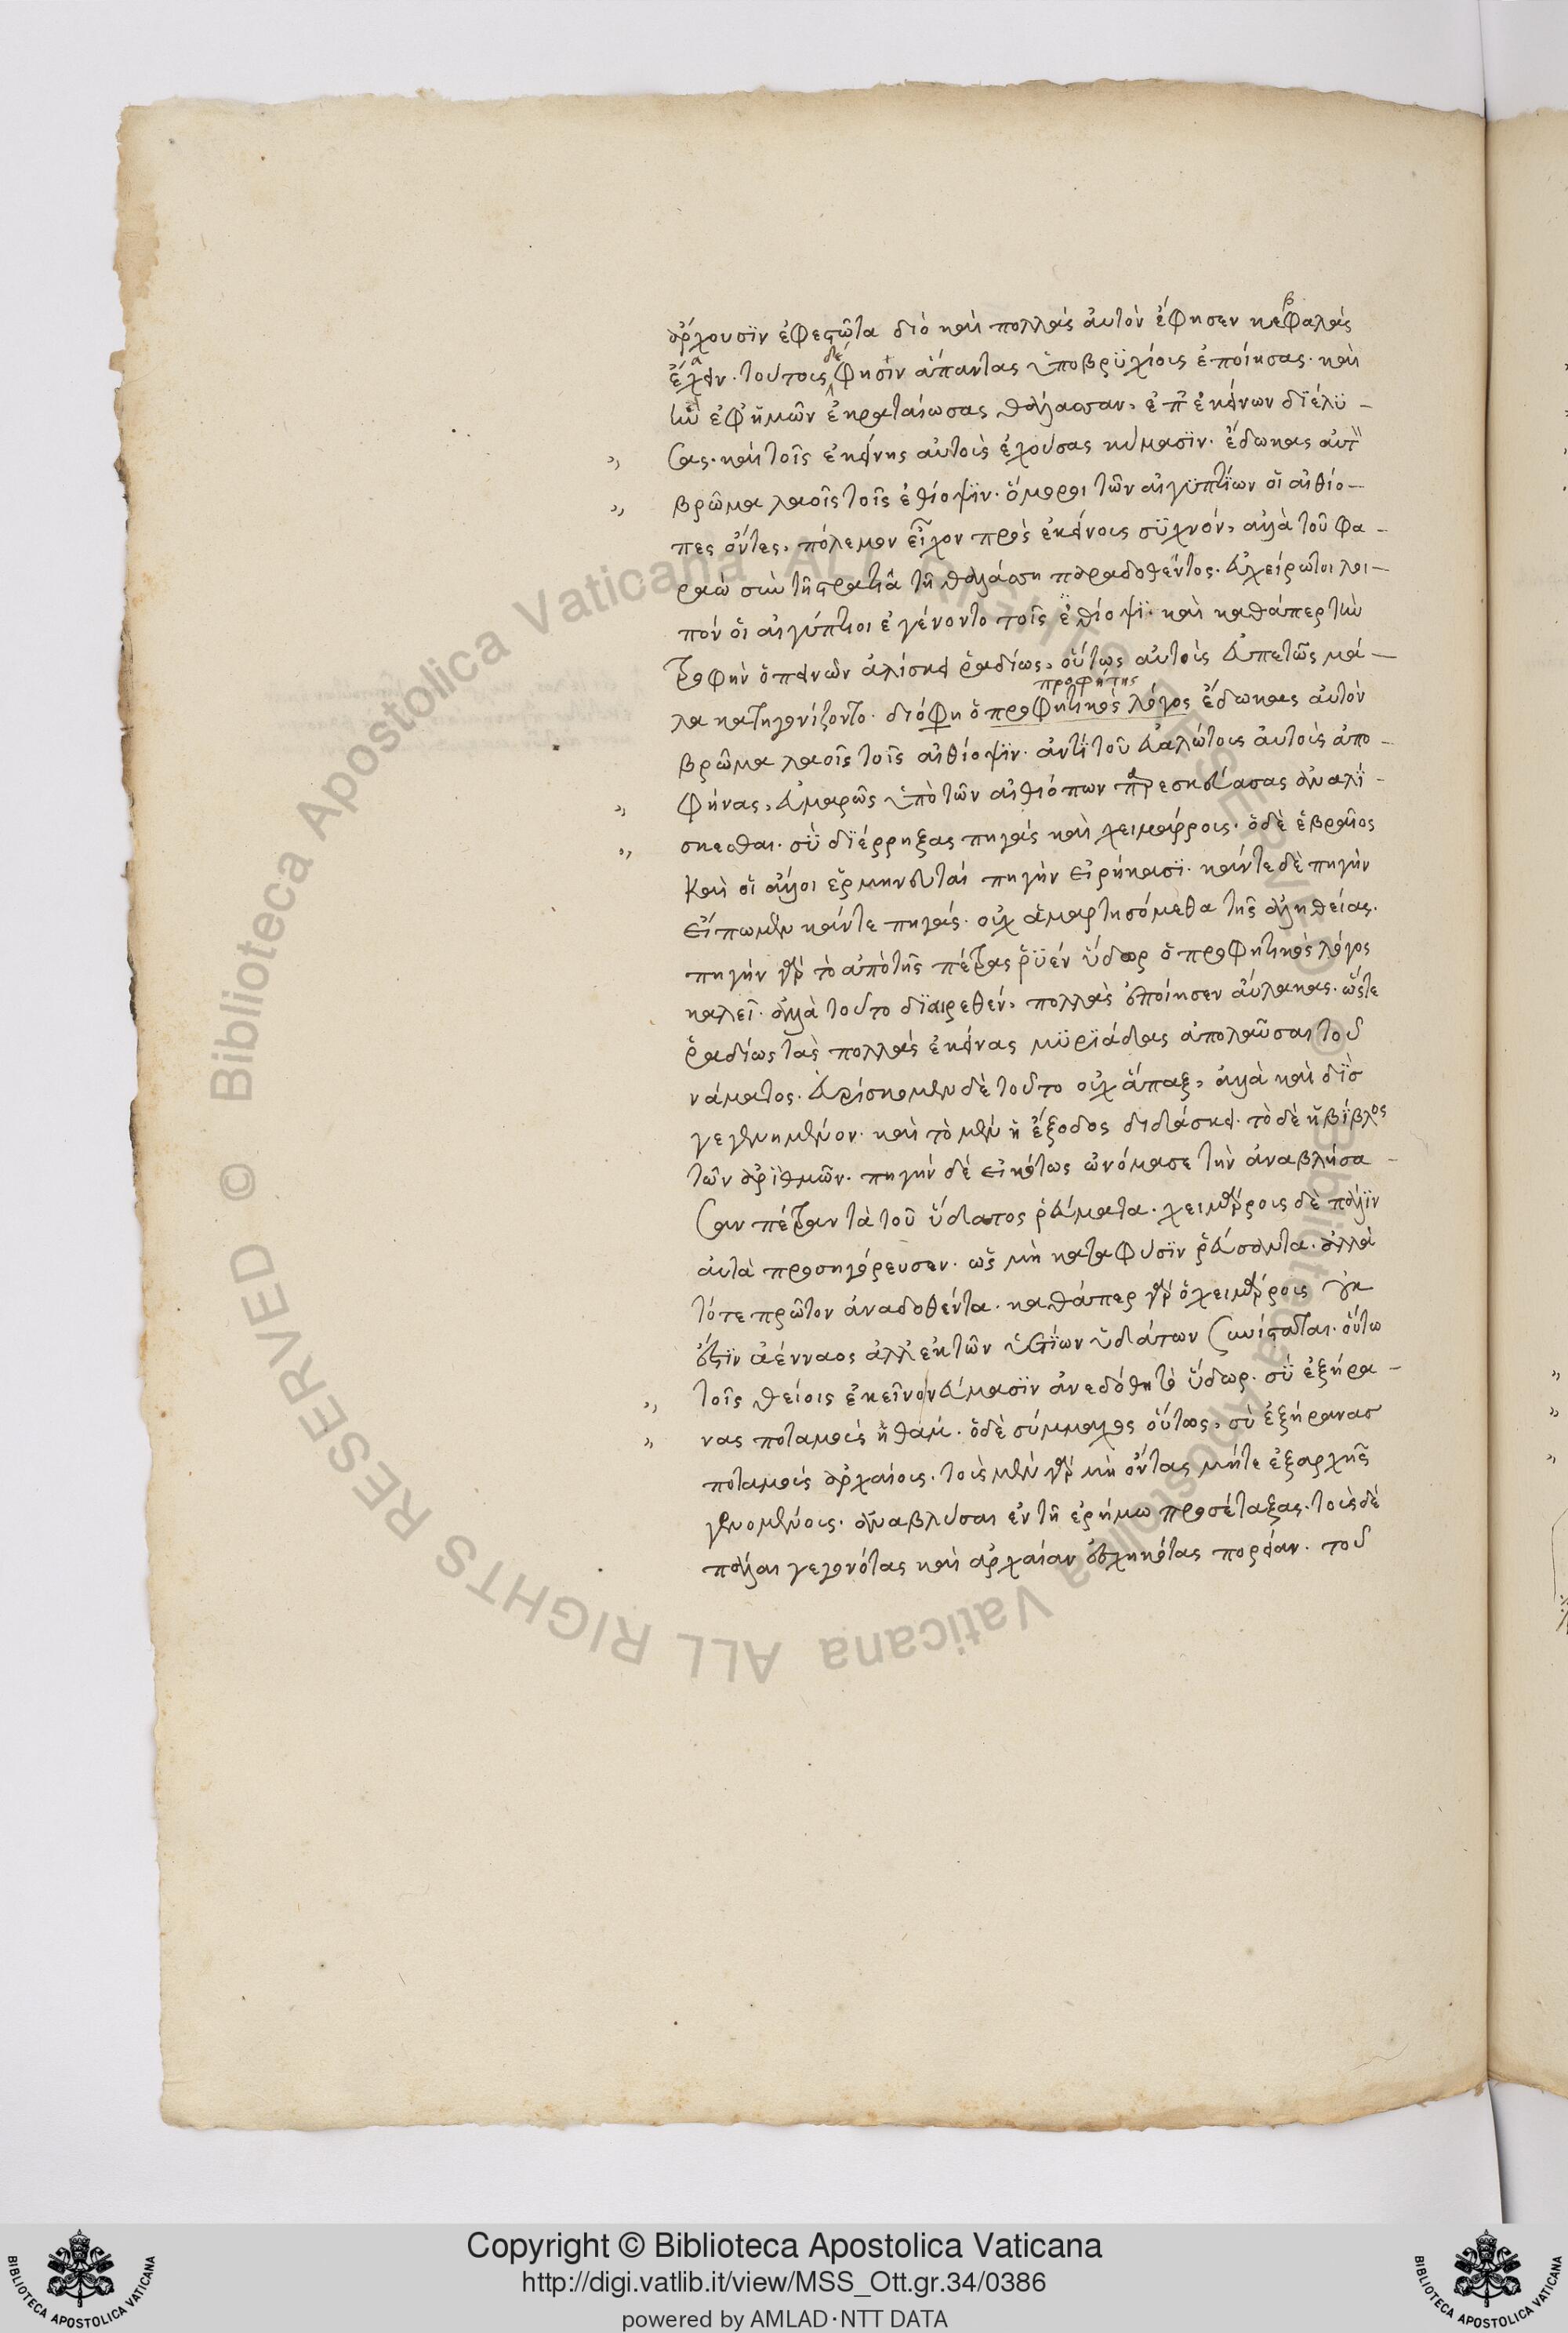 ἄρχουσϊν ἐφεστῶτα διὸ καὶ πολλὰς αὐτὸν ἔφησεν κεφαλὰς
ἔχειν. τούτους δὲ φησὶν ἅπαντας ὑποβρϋχίους ἐποίησας. καὶ
τὴν ἐφ' ἡμῶν ἐκραταίωσας θάλασσαν, ἐπ' ἐκείνων διέλϋ-
σας. καὶ τοῖς ἐκείνης αὐτοὺς ἐχούσας κύμασϊν. ἔδωκας αὐτὸν
βρῶμα λαοῖς τοῖς ἐθίοψϊν. ὅμοροι τῶν αἰγϋπτίων οἱ αἰθίο-
πες ὄντες, πόλεμον εἶχον πρὸς ἐκείνους σϋχνόν, ἀλλὰ τοῦ φα-
ραὼ σὺν τῇ στρατιᾷ τῇ θαλάσσῃ παραδοθέντος. εὐχείρωτοι λοι-
πὸν οἱ αἰγύπτιοι ἐγένοντο τοῖς ἐθίοψϊ. καὶ καθάπερ τὴν
τροφὴν ὁ πεινῶν ἁλίσκει ῥαδίως, οὕτως αὐτοὺς εὐπετῶς μά-
λα κατηγωνίζοντο. διό φη ὁ προφητικὸς λόγος ἔδωκας αὐτὸν
προφήτης
βρῶμα λαοῖς τοῖς αἰθίοψϊν. ἀντὶ τοῦ εὐαλώτους αὐτοὺς ἀπο-
φήνας, εὐμαρῶς ὑπὸ τῶν αἰθιόπων παρεσκεύασας ἀναλί-
σκεσθαι. σὺ διέρρηξας πηγὰς καὶ χειμάρρους. ὁ δὲ ἑβραῖος
καὶ οἱ ἄλλοι ἑρμηνευταὶ πηγὴν εἰρήκασϊ. κἄντε δὲ πηγὴν
εἴπωμεν κἄντε πηγάς. οὐχ ἁμαρτησόμεθα τῆς ἀληθείας.
πηγὴν γὰρ τὸ ἀπὸ τῆς πέτρας ῥϋὲν ὕδωρ ὁ προφητικὸς λόγος
καλεῖ. ἀλλὰ τοῦτο διαιρεθέν, πολλὰς ἐποίησεν αὔλακας. ὥστε
ῥαδίως τὰς πολλὰς ἐκείνας μϋρϊάδας ἀπολαῦσαι τοῦ
νάματος. εὑρίσκομεν δὲ τοῦτο οὐχ ἅπαξ, ἀλλὰ καὶ δῒς
γεγενημένον. καὶ τὸ μὲν ἡ ἔξοδος διδάσκει. τὸ δὲ ἡ βίβλος
τῶν ἀρϊθμῶν. πηγὴν δὲ εἰκότως ὠνόμασε τὴν ἀναβλύσα-
σαν πέτραν τὰ τοῦ ὕδατος ῥεύματα. χειμάρρους δὲ πάλϊν
αὐτὰ προσηγόρευσεν. ὡς μὴ κατὰ φύσϊν ῥεύσαντα. ἀλλὰ
τότε πρῶτον ἀναδοθέντα. καθάπερ γὰρ ὁ χειμάρρους οὐκ
ἔστϊν ἀένναος ἀλλ' ἐκ τῶν ὑετίων ὑδάτων συνίσταται. οὕτω
τοῖς θείοις ἐκεῖνο νεύμασϊν ἀνεδόθη τὸ ὕδωρ. σὺ ἐξήρα-
νας ποταμοὺς ἠθάμ. ὁ δὲ σύμμαχος οὕτως, σὺ ἐξήρανας
ποταμοὺς ἀρχαίους. τοὺς μὲν γὰρ μὴ ὄντας μήτε ἐξαρχῆς
γενομένους. ἀναβλύσαι ἐν τῇ ἐρήμω προσέταξας. τοὺς δὲ
πάλαι γεγονότας καὶ ἀρχαίαν ἐσχηκότας πορείαν. τοῦ
Copyright © Biblioteca Apostolica Vaticana
http://digi.vatlib.it/view/MSS_Ott.gr.34/0386
powered by AMLAD·NTT DATA
BIBLIOTECA APOSTOLICA VATICANA
BIBLIOTECA APOSTOLICA VATICANA
© Biblioteca Apostolica Vaticana ALL RIGHTS RESERVED © Biblioteca Apostolica Vaticana ALL RIGHTS RESERVED